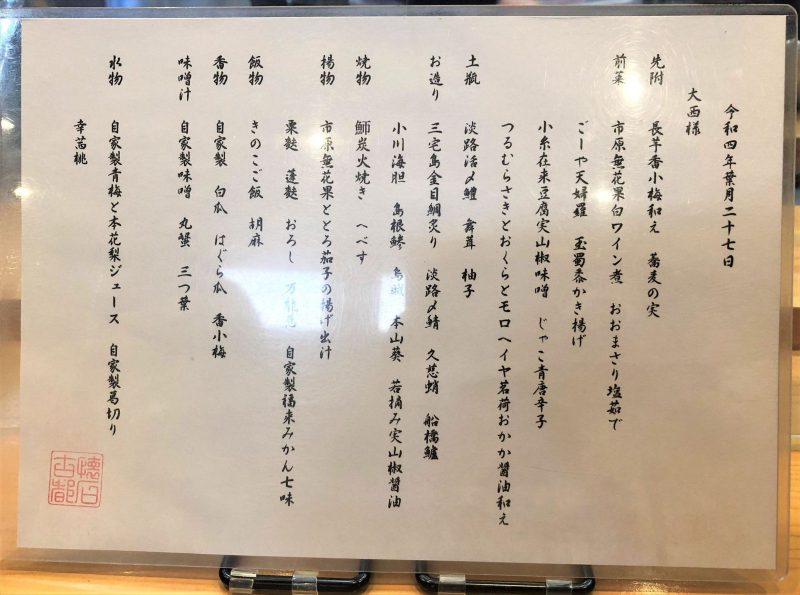 令和四年葉月二十七日
大西様
先附　長芋香小梅和え　蕎麦の実
前菜　市原無花果白ワイン煮　おおまさり塩茹で
ごーや天婦羅　玉蜀黍かき揚げ
小糸在来豆腐実山椒味噌　じゃこ青唐辛子
つるむらさきとおくらとモロヘイヤ茗荷おかか醤油和え
土瓶　淡路活〆鱧　舞茸　柚子
お造り　三宅島金目鯛炙り　淡路〆鯖　久慈蛸　船橋鱸
小川海胆　島根鯵　烏賊　本山葵　若摘み実山椒醤油
焼物　鰤炭火焼き　へべす
揚物　市原無花果ととろ茄子の揚げ出汁
粟麩　蓬麩　おろし　万能葱　自家製福来みかん七味
飯物　きのこご飯　胡麻
香物　自家製　白瓜　はぐら瓜　香小梅
味噌汁　自家製味噌　丸蟹　三つ葉
水物　自家製青梅と本花梨ジュース　自家製馬切り
幸茜桃
懐石
古都